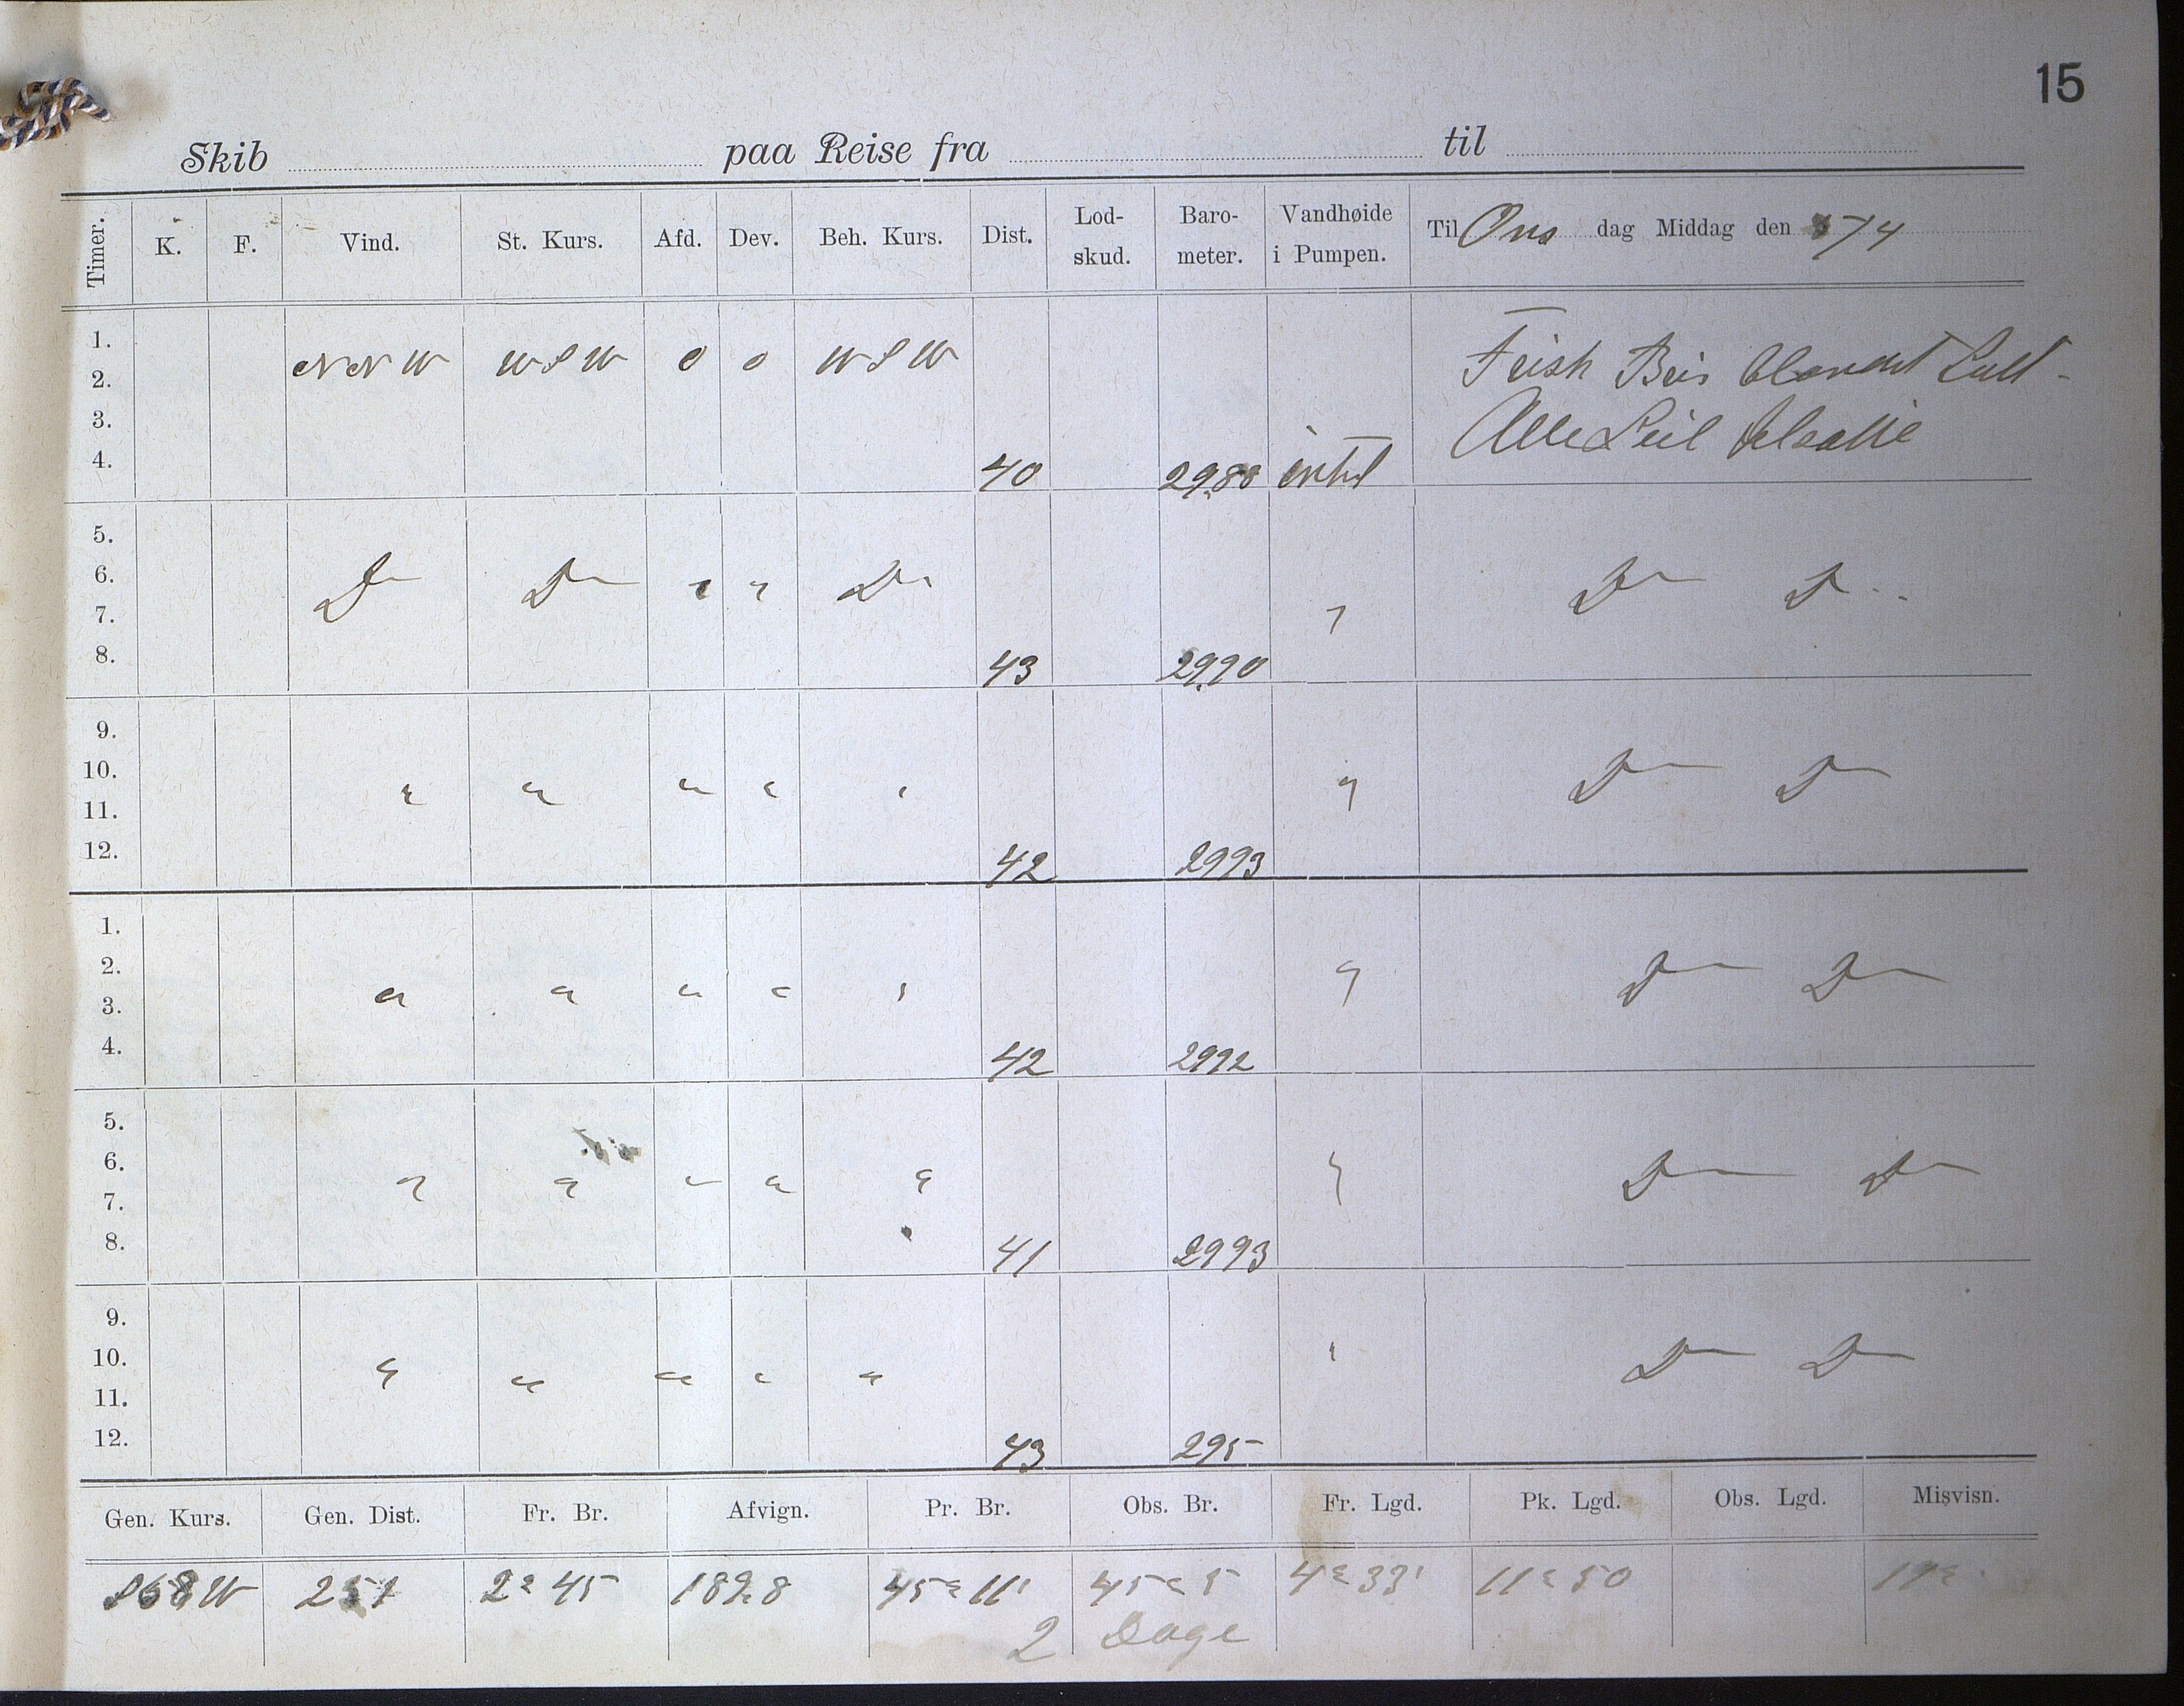 15
Skib paa Reise fra til
Timer. K. F. Vind. St. Kurs. Afd. Dev. Beh. Kurs. Dist. Lod-skud. Baro-meter. Vandhøide i Pumpen. Til Ons dag Middag den /4
1. NNW WSW 0 0 WSW Frisk Bris blandet Luft
2.
3. Alle Seil
4. 40 29.88 intet
5.
6. Do Do " " Do " Do Do
7.
8. 43 29.90
9.
10. " " " " " " Do Do
11.
12. 42 2993
1.
2. " " " " " " Do Do
3.
4. 42 2992
5.
6. " " " " " " Do Do
7.
8. 41 2993
9.
10. " " " " " " Do Do
11.
12. 43 295
Gen. Kurs. Gen. Dist. Fr. Br. Afvign. Pr. Br. Obs. Br. Fr. Lgd. Pk. Lgd. Obs. Lgd. Misvisn.
S68W 251 2° 45 189.8 45° 11' 45° 5 4° 33' 11° 50
2 Dage